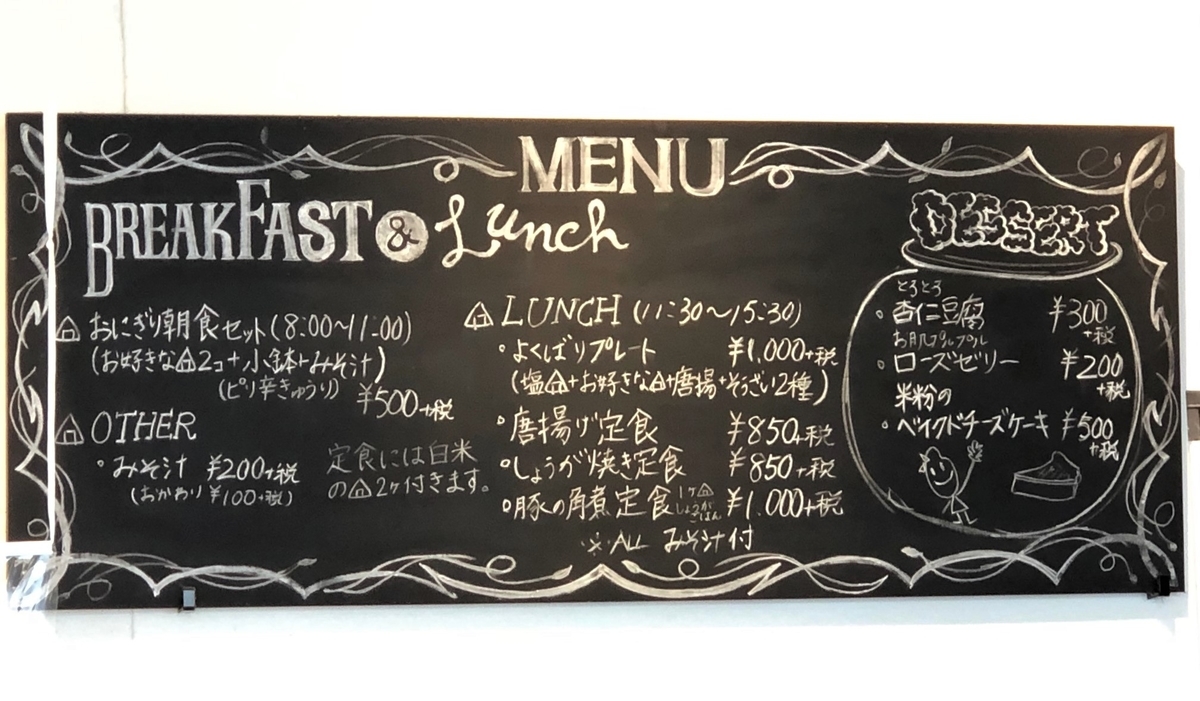 MENU
BREAKFAST & Lunch
おにぎり朝食セット(8:00〜11:00)
(お好きな🍙2コ+小鉢+みそ汁)
(ピリ辛きゅうり)
¥500+税
OTHER
・みそ汁 ¥200+税
(おかわり ¥100+税)
定食には白米
の🍙2ヶ付きます。
LUNCH (11:30〜15:30)
・よくばりプレート ¥1,000+税
(塩🍙+お好きな🍙+唐揚+そうざい2種)
・唐揚げ定食 ¥850+税
・しょうが焼き定食 ¥850+税
・豚の角煮定食 1ヶ🍙 しょうがごはん ¥1,000+税
※ALL みそ汁付
DESSERT
とろとろ
・杏仁豆腐 ¥300+税
お肌プルプル
・ローズゼリー ¥200+税
米粉の
・ベイクドチーズケーキ ¥500+税